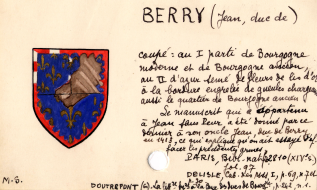 BERRY (Jean, duc de)
coupé : au I parti de Bourgogne
moderne et de Bourgogne ancien
au II d'azur semé de fleurs de lis d'or
à la bordure engrelée de gueules chargeant
aussi le quartier de Bourgogne ancien
Le manuscrit qui a appartenu
à Jean sans Peur, a été donné par ce
dernier à son oncle Jean, duc de Berry
en 1413, ce qui explique qu'on ait essayé d'y
faire les précédentes armes.
PARIS, Bibl. nat. 2810 (XIVe s.)
fol. 97
M-S. DELISLE, Cab. des Mss I, p. 69,
DOUTREPONT (G).